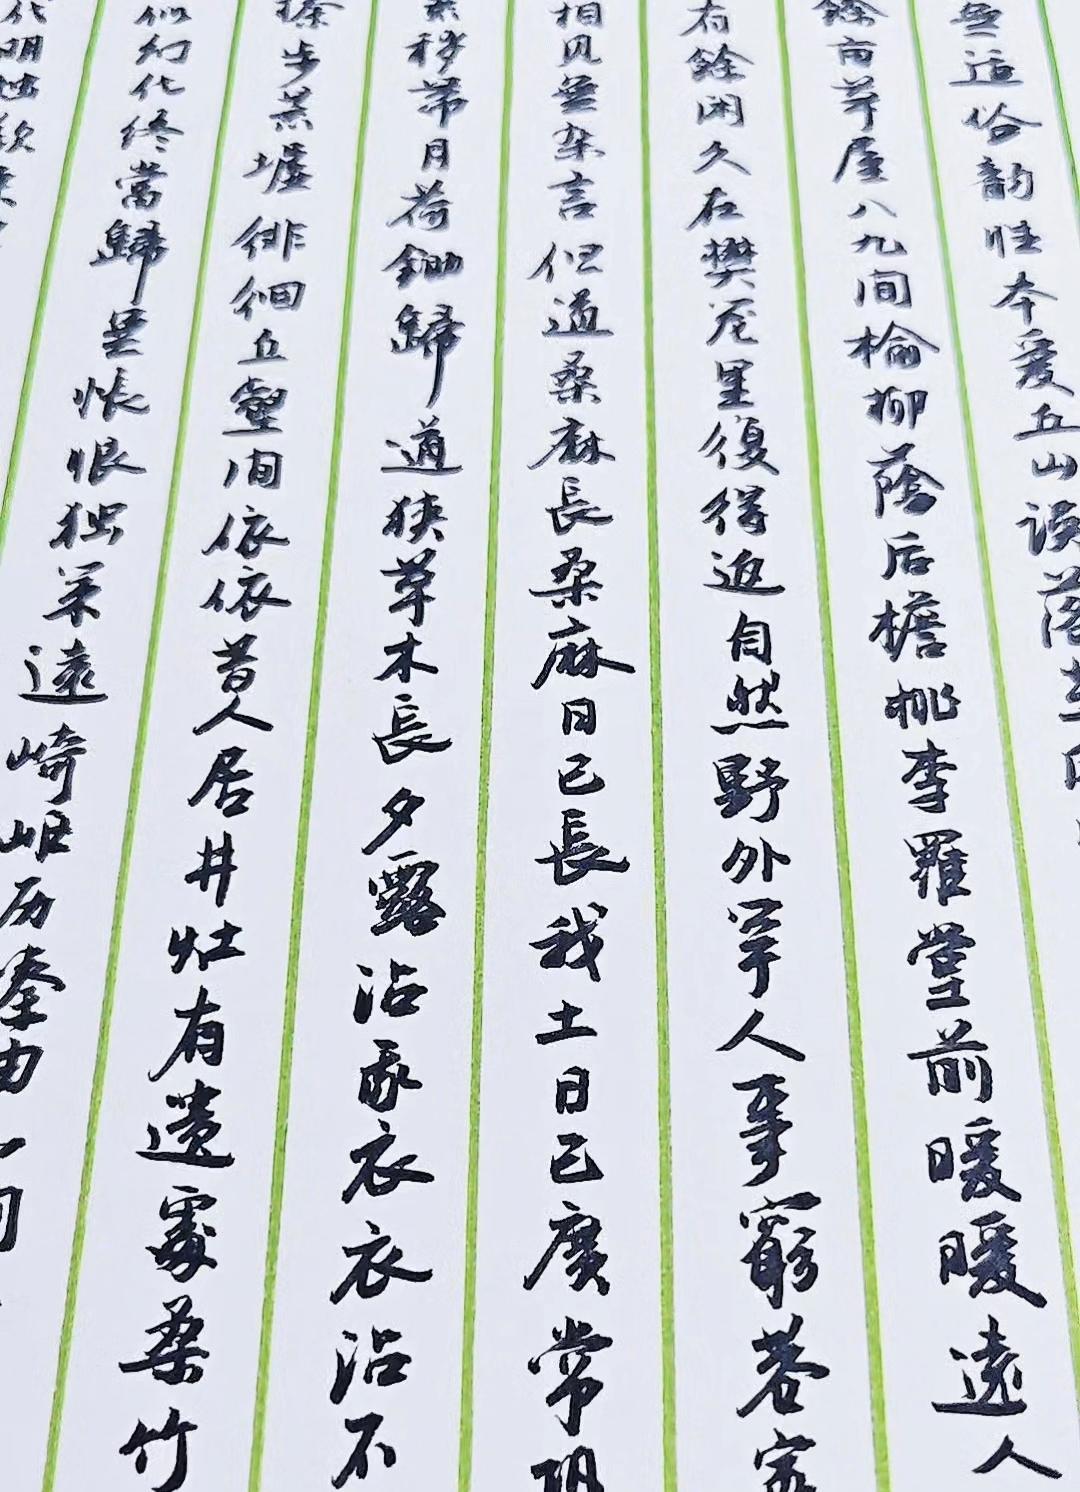 無适俗韵性本爱丘山误落
餘亩草屋八九间榆柳蔭后檐桃李羅堂前暖暖遠人
有餘闲久在樊笼里復得返自然野外罕人事窮巷寡
相见無杂言但道桑麻長桑麻日已長我土日已廣常
秽带月荷鋤歸道狭草木長夕露沾我衣衣沾不
榛步荒墟徘徊丘壑间依依昔人居井灶有遗處桑竹
似幻化终當歸空悵恨独策遠崎岖历榛曲